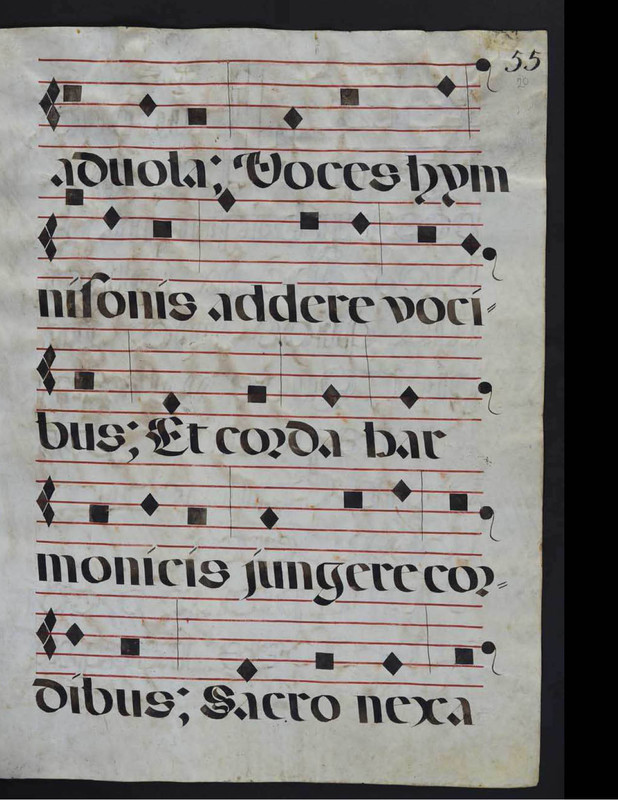 55
29
advola; Voces hym
nisonis addere voci=
bus; Et corda har
monicis jungere cor=
dibus; Sacro nexa